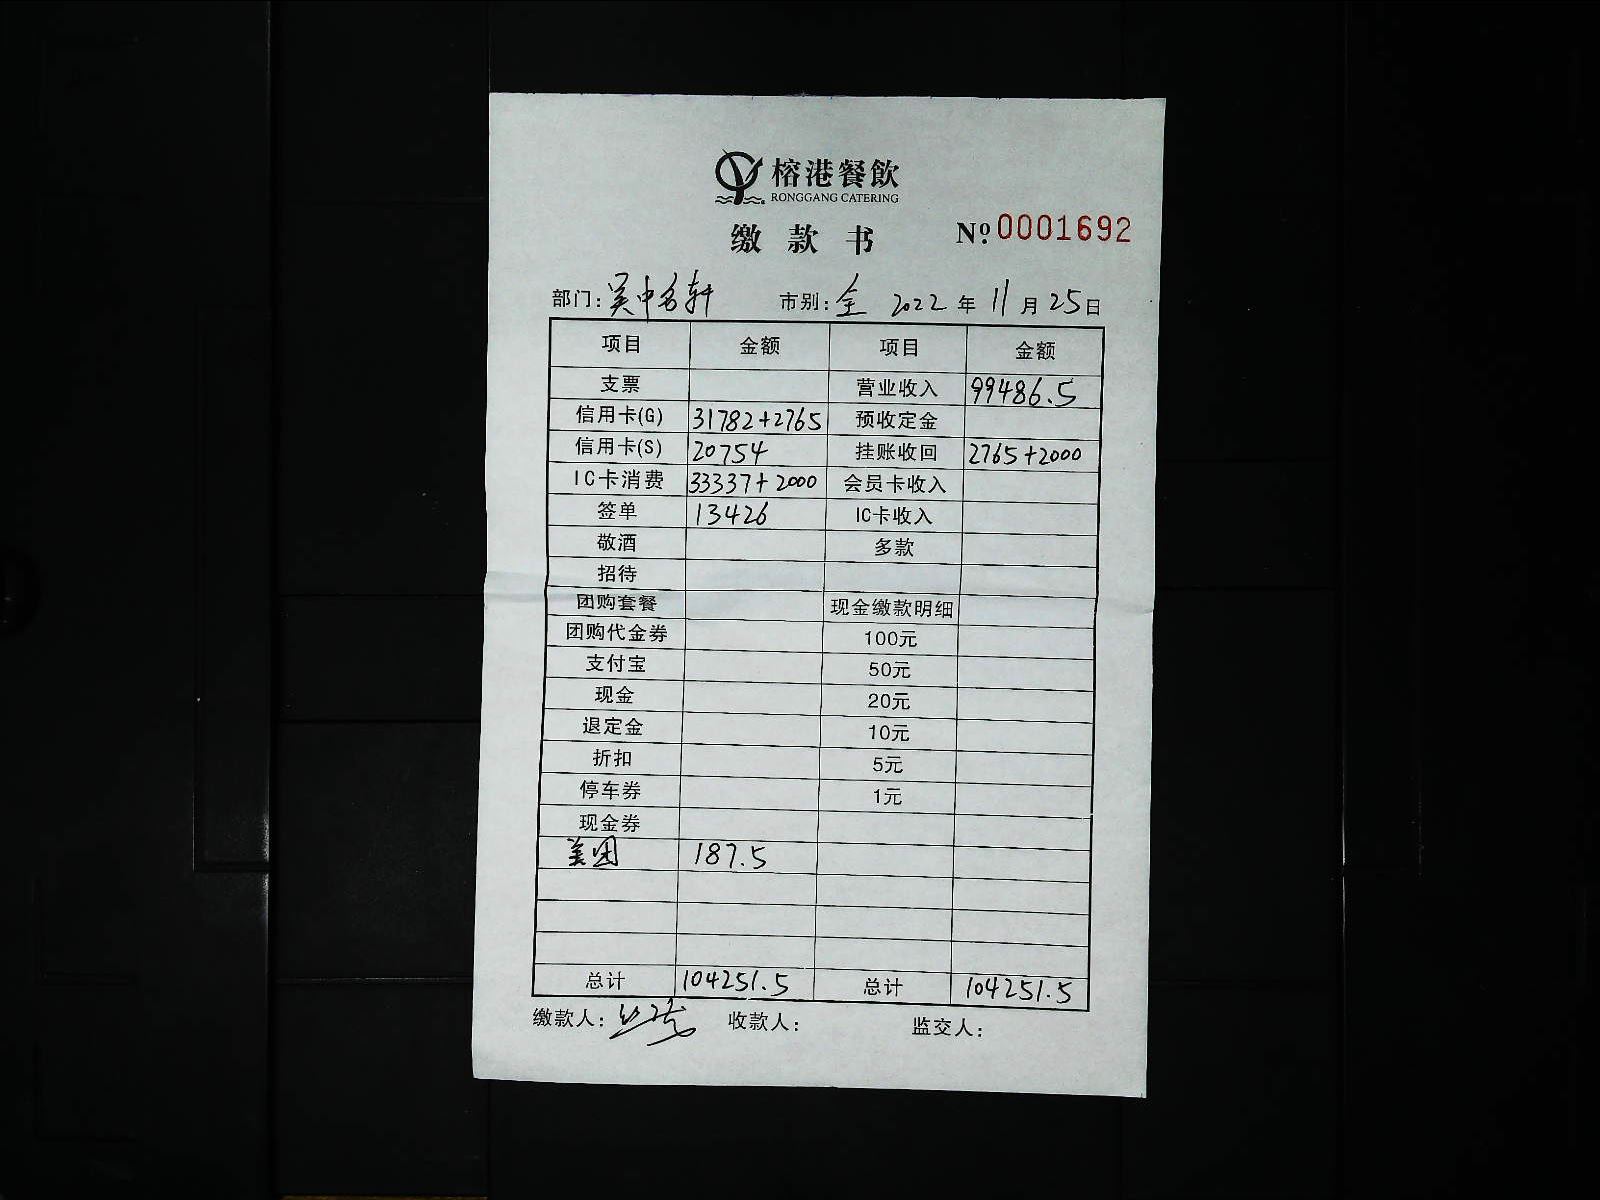 榕港餐飲
RONGGANG CATERING
缴款书 Nº 0001692
部门: 吴中名轩 市别: 全 2022年11月25日
项目 金额 项目 金额
支票 营业收入 99486.5
信用卡(G) 31782+2765 预收定金
信用卡(S) 20754 挂账收回 2765+2000
IC卡消费 33337+2000 会员卡收入
签单 13426 IC卡收入
敬酒 多款
招待
团购套餐 现金缴款明细
团购代金券 100元
支付宝 50元
现金 20元
退定金 10元
折扣 5元
停车券 1元
现金券
美团 187.5
总计 104251.5 总计 104251.5
缴款人: 收款人: 监交人: